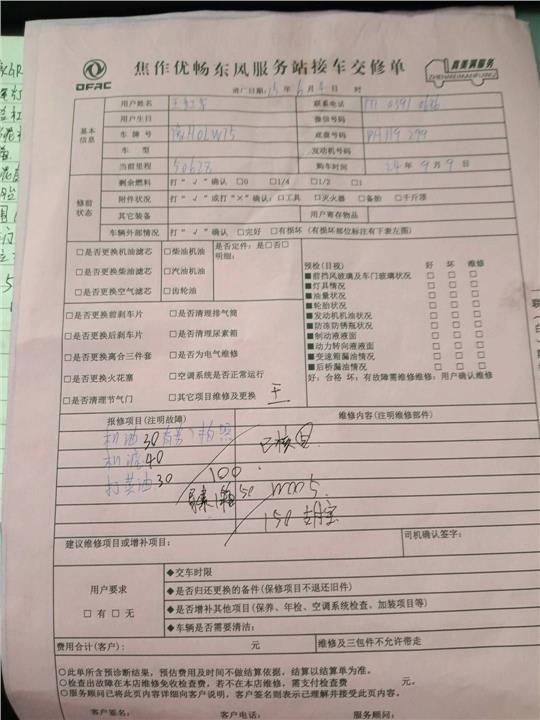 DFAC
焦作优畅东风服务站接车交修单
真美满服务
ZHENMEIMANFUWU
进厂日期: 15 年 6 月 日 时
基本信息
用户姓名 联系电话
用户生日 微信号码
车 牌 号 底盘号码 PH119299
车 型 发动机号码
当前里程 50627 购车时间 24 年 9 月 9 日
修前状态
剩余燃料 打“√”确认 □0 □1/4 □1/2 □1
附件状况 打“√”或打“×”确认: □工具 □灭火器 □备胎 □千斤顶
其它装备 用户寄存物品
车辆外部情况 打“√”确认 □完好 □有损坏 (有损坏部位标注有下表左图)
□是否更换机油滤芯 □柴油机油 是否定件: 是□否□
□是否更换柴油滤芯 □汽油机油 明细:
□是否更换空气滤芯 □齿轮油
□是否更换前刹车片 □是否清理排气筒
□是否更换后刹车片 □是否清理尿素箱
□是否更换离合三件套 □是否为电气维修
□是否更换火花塞 □空调系统是否正常运行
□是否清理节气门 □其它项目维修及更换
预检(目视) 好 坏 维修
■前挡风玻璃及车门玻璃状况 □ □ □
■灯具情况 □ □ □
■油量状况 □ □ □
■轮胎状况 □ □ □
■发动机机油状况 □ □ □
■防冻防锈瓶状况 □ □ □
■制动液液面 □ □ □
■动力转向液液面 □ □ □
■变速箱漏油情况 □ □ □
■后桥漏油情况 □ □ □
好: 合格 坏: 有故障需维修维修: 用户确认维修
报修项目(注明故障) 维修内容(注明维修部件)
机油 30
机滤 40
打黄油 30
100
50
150
建议维修项目或增补项目: 司机确认签字:
用户要求
□ 有 □ 无
◆交车时限
◆是否归还更换的备件(保修项目不退还旧件)
◆是否增补其他项目(保养、年检、空调系统检查、加装项目等)
◆车辆是否需要清洁:
费用合计(客户): 元 维修及三包件不允许带走
○此单所含预诊断结果,预估费用及时间不做结算依据,结算以结算单为准。
○检查出故障在本店维修免收检查费,若不在本店维修、需支付检查费 元。
○服务顾问已将此页内容详细向客户说明,客户签名则表示已理解并接受此页内容。
客户签名: 客户电话: 服务顾问: